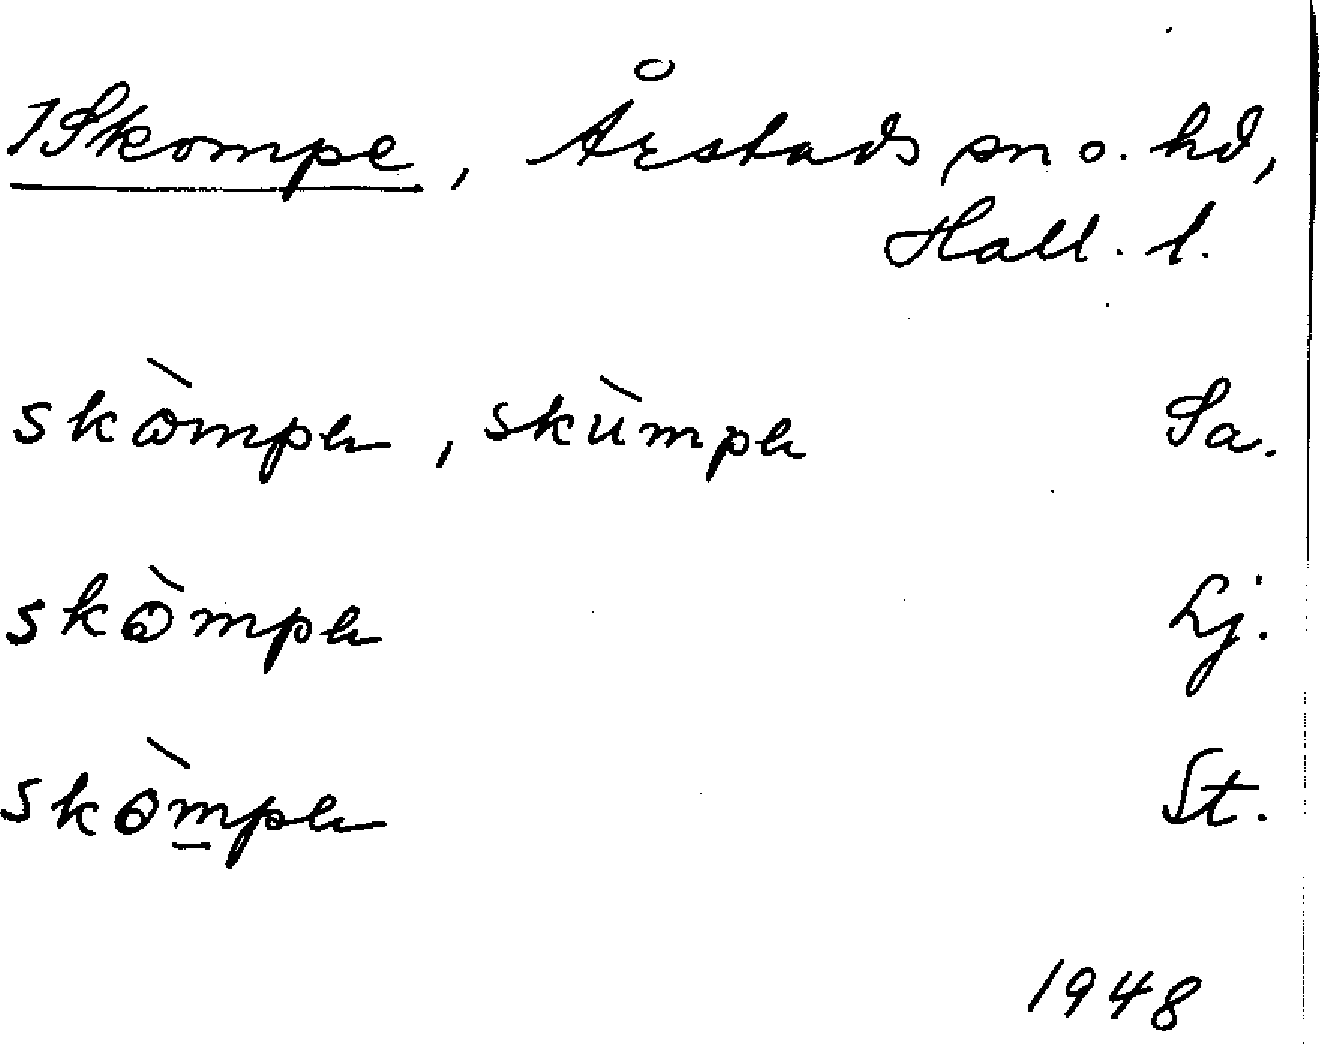 1Skompe, Årstads sn o. hd,
Hall. l.
skòmpe, skùmpe Sa.
skòmpe Lj.
skòmpe St.
1948